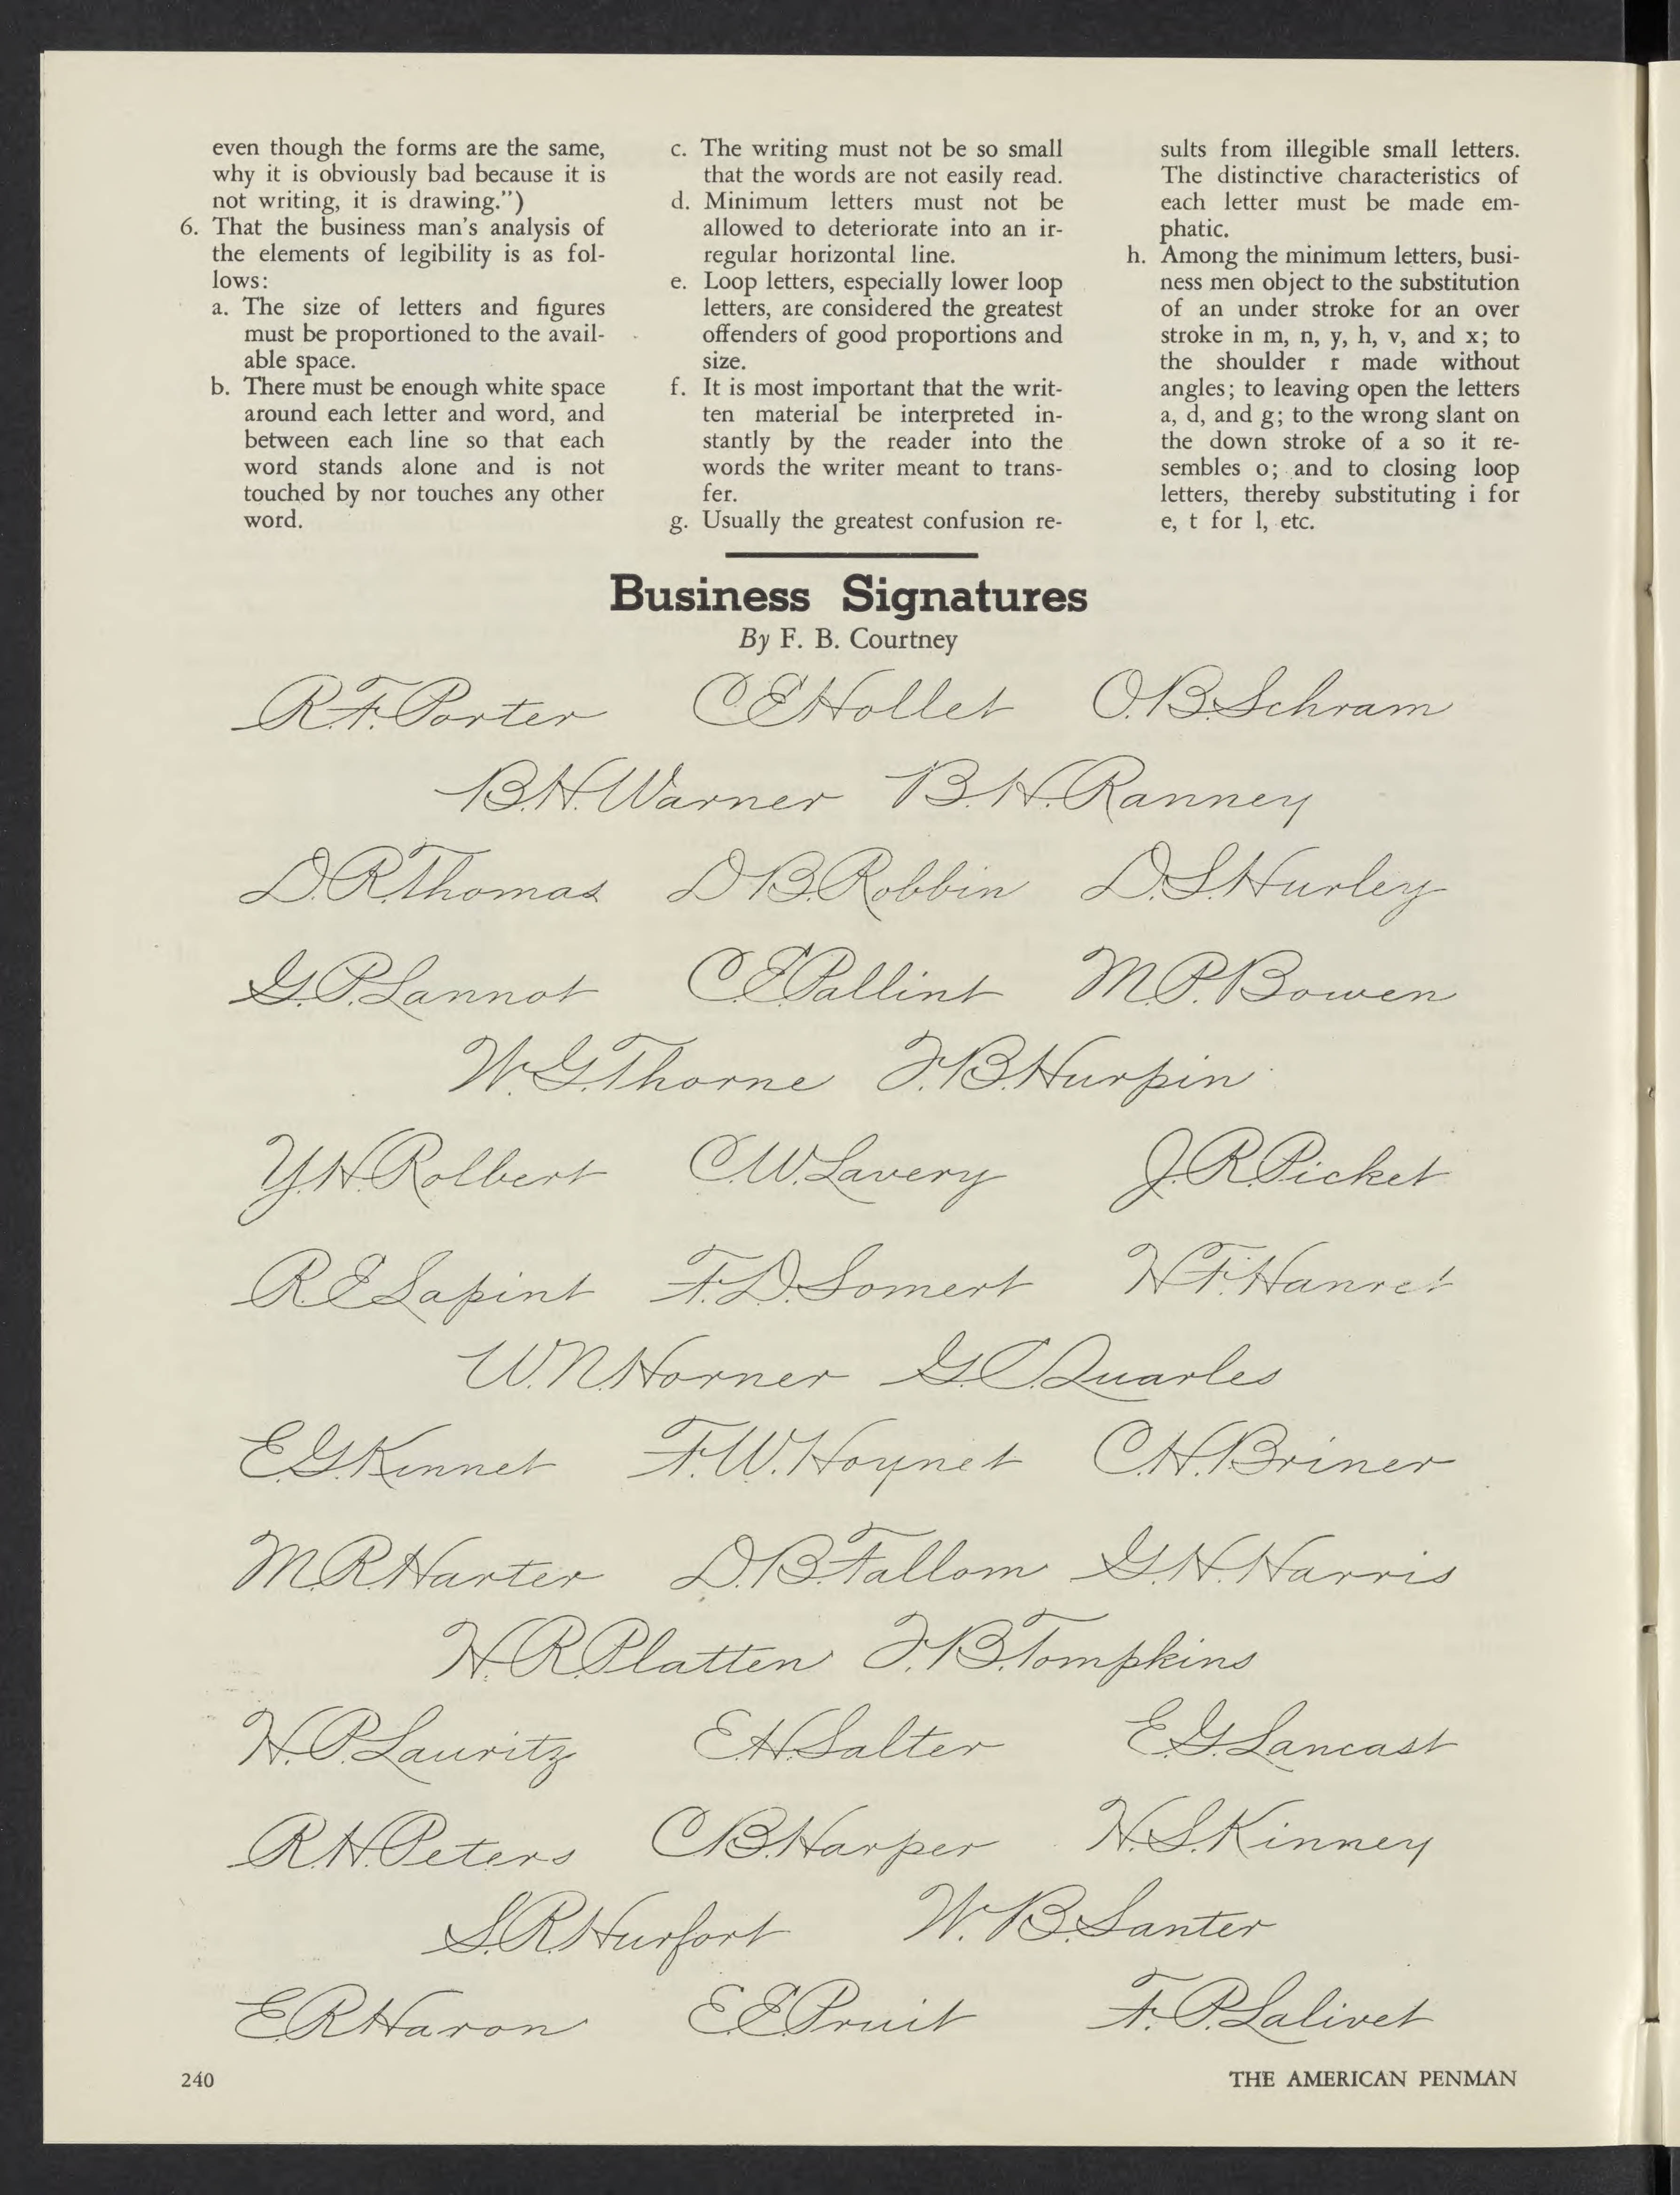 even though the forms are the same,
why it is obviously bad because it is
not writing, it is drawing.")
6. That the business man's analysis of
the elements of legibility is as fol-
lows:
a. The size of letters and figures
must be proportioned to the avail-
able space.
b. There must be enough white space
around each letter and word, and
between each line so that each
word stands alone and is not
touched by nor touches any other
word.
c. The writing must not be so small
that the words are not easily read.
d. Minimum letters must not be
allowed to deteriorate into an ir-
regular horizontal line.
e. Loop letters, especially lower loop
letters, are considered the greatest
offenders of good proportions and
size.
f. It is most important that the writ-
ten material be interpreted in-
stantly by the reader into the
words the writer meant to trans-
fer.
g. Usually the greatest confusion re-
sults from illegible small letters.
The distinctive characteristics of
each letter must be made em-
phatic.
h. Among the minimum letters, busi-
ness men object to the substitution
of an under stroke for an over
stroke in m, n, y, h, v, and x; to
the shoulder r made without
angles; to leaving open the letters
a, d, and g; to the wrong slant on
the down stroke of a so it re-
sembles o; and to closing loop
letters, thereby substituting i for
e, t for l, etc.
Business Signatures
By F. B. Courtney
R.F. Porter C E Hollet O.B. Schram
B.H. Warner B.H. Ranney
D.R. Thomas D B. Robbin D.S. Hurley
G.P. Lannot C.E. Pallint M.P. Bowen
W.G. Thorne F.B. Hurpin
Y.H. Rolbert C.W. Lavery J.R. Picket
R.E. Lapint F.D. Somert H.F. Hanret
W.N. Horner G.C. Quarles
E.G. Kennet F.W. Hoynet C.H. Briner
M.R. Harter D.B. Fallom G.H. Harris
H.R. Platten F.B. Tompkins
H.P. Lauritz E.H. Salter E.G. Lancast
R.H. Peters C B. Harper H.S. Kinney
S.R. Hurfort W.B. Santer
E.R. Haron E.E. Pruit F.P. Lalivet
240 THE AMERICAN PENMAN